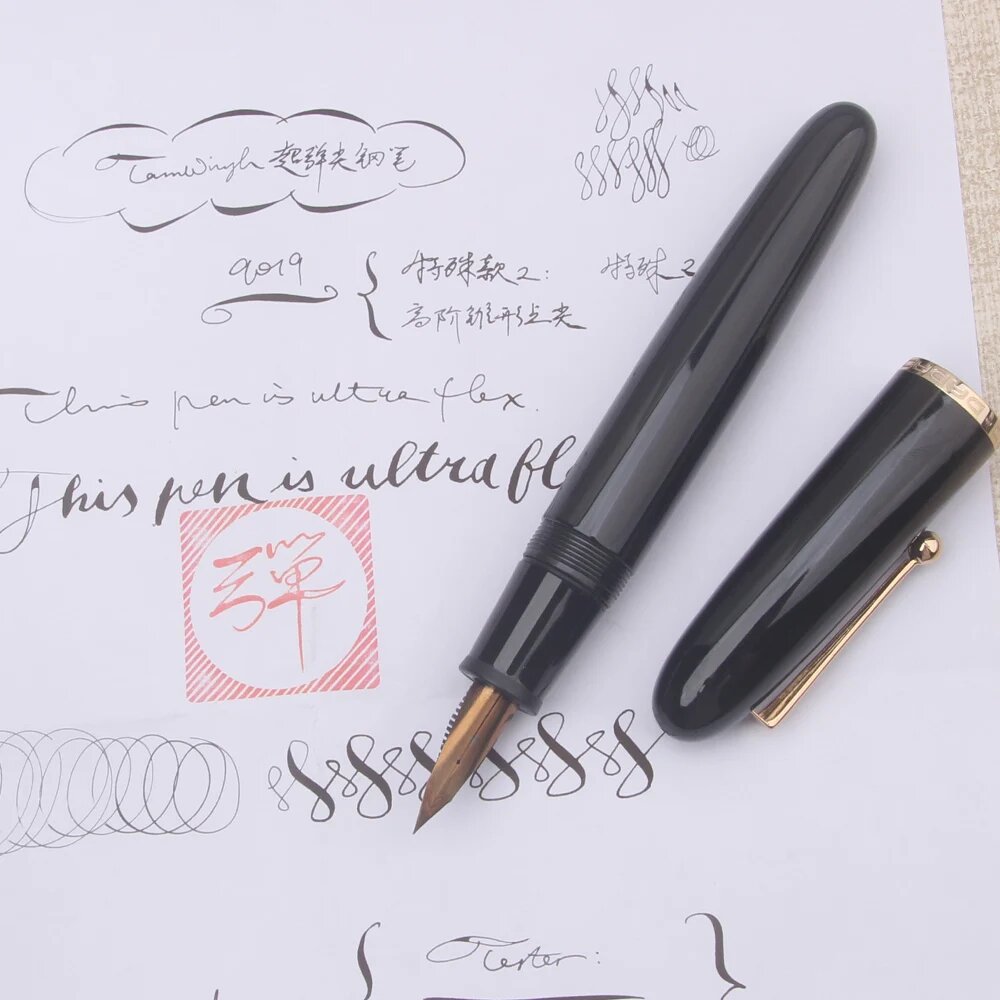 超弹尖钢笔
9019
特殊款2: 特殊2
高阶锥形
This pen is ultra flex.
This pen is ultra fl
彈
Tester: